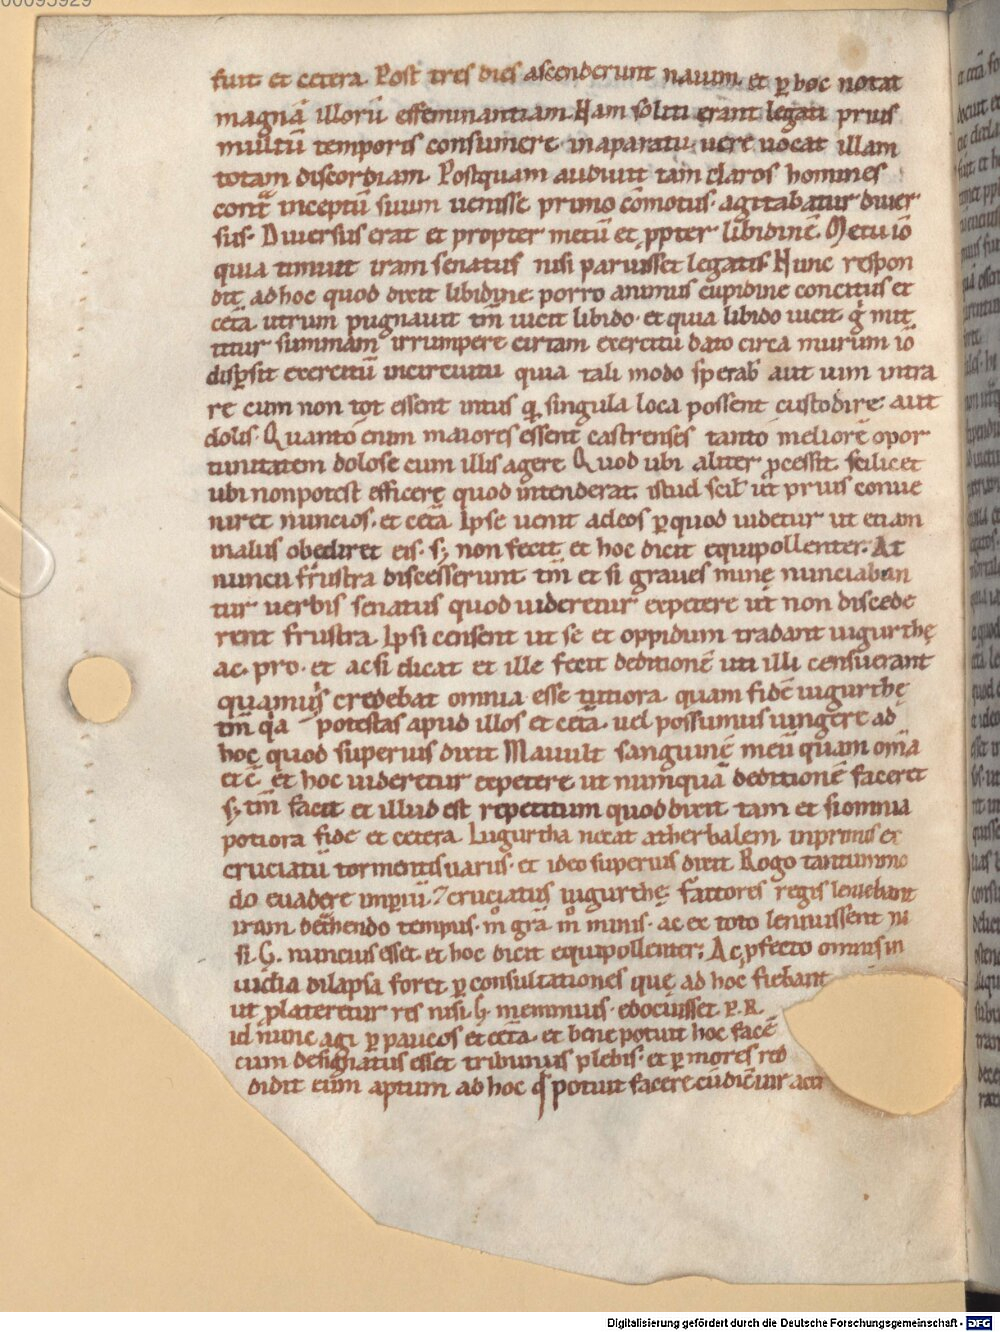 00095929
fuit et cetera. Post tres dies ascenderunt nauim. et ꝑ hoc notat
magnā illorū effeminantiam. Nam soliti erant legati prius
multū temporis consumere. in aparatu. uere uocat illam
totam discordiam. Postquam audiuit tam claros homines
contͣ inceptū suum uenisse. primo cōmotus. agitabatur diuer
sus. Diuersus erat et propter metū et ꝓpter libidinē. Metu iō
quia timuit iram senatus nisi paruisset legatis. Nunc respon
dit ad hoc quod dixit libidine. porro animus cupidine concitus et
cetā. utrum pugnauit tm̄ uicit libido. et quia libido uicit g̊ mit
titur summam irrumpere cirtam exercitu dato circa murum iō
disꝑsit exercitū incircuitu quia tali modo sperab̄ aut uim intra
re cum non tot essent intus q singula loca possent custodire. aut
dolis. Quanto enim maiores essent castrenses tanto meliorē opor
tunitatem dolose cum illis agere. Quod ubi aliter ꝓcessit. scilicet
ubi non potest efficere quod intenderat. istud scil̄ ut prius conue
niret nuncios. et cetā. Ipse uenit adeos ꝑquod uidetur ut etiam
malus obediret eis. sꝫ non fecit et hoc dicit equipollenter. At
nuncii frustra discesserunt. tm̄ et si graues minę nunciaban
tur uerbis senatus quod uideretur expetere ut non discede
rent frustra. Ipsi censent ut se et oppidum tradant iugurthę
ac. pro. et acsi dicat et ille fecit deditionē uti illi censuerant
quamuis credebat omnia esse tutiora quam fidē iugurthę
tm̄ qͥa potestas apud illos et cetā. uel possumus iungere ad
hoc quod superius dixit Mauult sanguinē meū quam om̄a
et c̄ et hoc uideretur expetere ut numquā deditionē faceret
sꝫ tm̄ facit et illud est repetitum quod dixit tam et si omnia
potiora fide et cetera. Iugurtha necat atherbalem. inprimis ex
cruciatū tormentis uariis. et ideo superius dixit. Rogo tantummo
do euadere imꝑiū. ⁊ cruciatus iugurthę. fattores regis leniebant
iram detͣhendo tempus. m̊ gra. m̊ minis. ac ex toto leniuissent ni
si. G. nuncius esset. et hoc dicit equipollenter. Ac ꝓfecto omnis in
uidia dilapsa foret ꝑ consultationes quę ad hoc fiebant
ut ꝓlateretur res nisi. G. memmius. edocuisset. P. R.
id nunc agi ꝑ paucos et cetā. et bene potuit hoc facē
cum designatus esset tribunus plebis. et ꝑ mores red
didit eum aptum ad hoc q potuit facere. cū
Digitalisierung gefördert durch die Deutsche Forschungsgemeinschaft - DFG